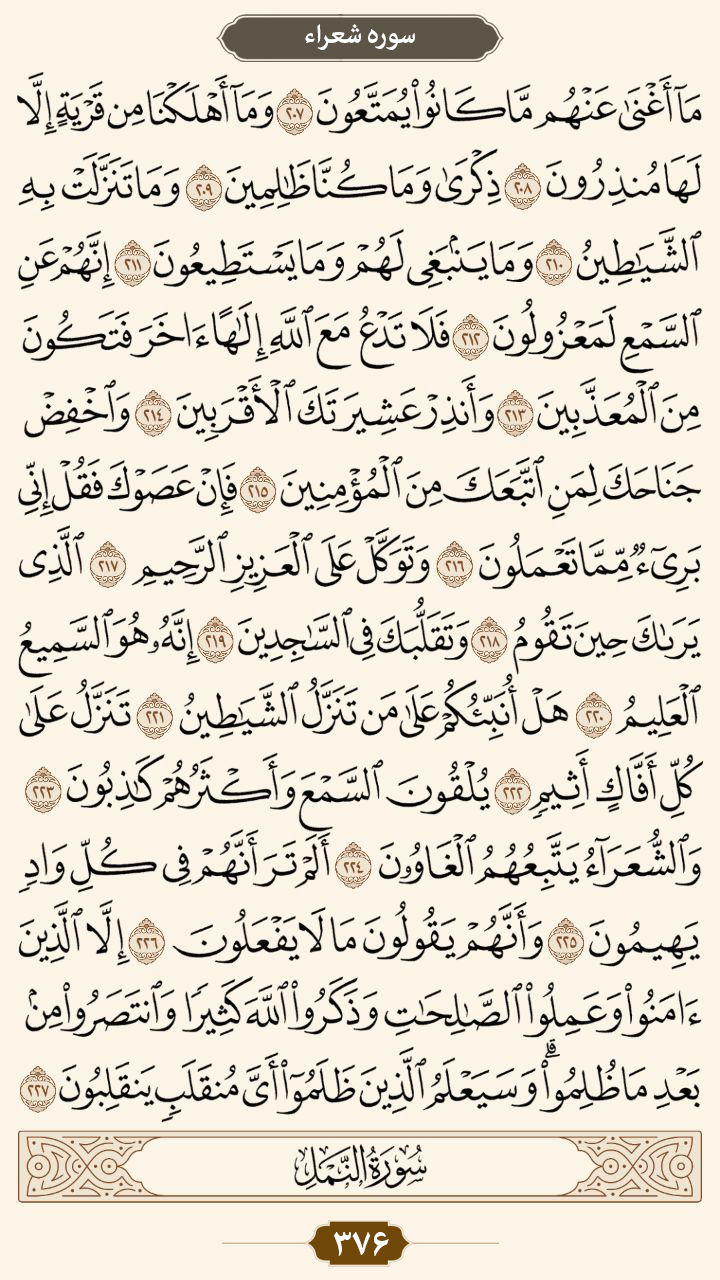 سوره شعراء
مَآ أَغْنَىٰ عَنْهُم مَّا كَانُوا۟ يُمَتَّعُونَ ٢٠٧ وَمَآ أَهْلَكْنَا مِن قَرْيَةٍ إِلَّا
لَهَا مُنذِرُونَ ٢٠٨ ذِكْرَىٰ وَمَا كُنَّا ظَٰلِمِينَ ٢٠٩ وَمَا تَنَزَّلَتْ بِهِ
ٱلشَّيَٰطِينُ ٢١٠ وَمَا يَنۢبَغِى لَهُمْ وَمَا يَسْتَطِيعُونَ ٢١١ إِنَّهُمْ عَنِ
ٱلسَّمْعِ لَمَعْزُولُونَ ٢١٢ فَلَا تَدْعُ مَعَ ٱللَّهِ إِلَٰهًا ءَاخَرَ فَتَكُونَ
مِنَ ٱلْمُعَذَّبِينَ ٢١٣ وَأَنذِرْ عَشِيرَتَكَ ٱلْأَقْرَبِينَ ٢١٤ وَٱخْفِضْ
جَنَاحَكَ لِمَنِ ٱتَّبَعَكَ مِنَ ٱلْمُؤْمِنِينَ ٢١٥ فَإِنْ عَصَوْكَ فَقُلْ إِنِّى
بَرِىٓءٌ مِّمَّا تَعْمَلُونَ ٢١٦ وَتَوَكَّلْ عَلَى ٱلْعَزِيزِ ٱلرَّحِيمِ ٢١٧ ٱلَّذِى
يَرَىٰكَ حِينَ تَقُومُ ٢١٨ وَتَقَلُّبَكَ فِى ٱلسَّٰجِدِينَ ٢١٩ إِنَّهُۥ هُوَ ٱلسَّمِيعُ
ٱلْعَلِيمُ ٢٢٠ هَلْ أُنَبِّئُكُمْ عَلَىٰ مَن تَنَزَّلُ ٱلشَّيَٰطِينُ ٢٢١ تَنَزَّلُ عَلَىٰ
كُلِّ أَفَّاكٍ أَثِيمٍ ٢٢٢ يُلْقُونَ ٱلسَّمْعَ وَأَكْثَرُهُمْ كَٰذِبُونَ ٢٢٣
وَٱلشُّعَرَآءُ يَتَّبِعُهُمُ ٱلْغَاوُۥنَ ٢٢٤ أَلَمْ تَرَ أَنَّهُمْ فِى كُلِّ وَادٍ
يَهِيمُونَ ٢٢٥ وَأَنَّهُمْ يَقُولُونَ مَا لَا يَفْعَلُونَ ٢٢٦ إِلَّا ٱلَّذِينَ
ءَامَنُوا۟ وَعَمِلُوا۟ ٱلصَّٰلِحَٰتِ وَذَكَرُوا۟ ٱللَّهَ كَثِيرًا وَٱنتَصَرُوا۟ مِنۢ
بَعْدِ مَا ظُلِمُوا۟ ۗ وَسَيَعْلَمُ ٱلَّذِينَ ظَلَمُوٓا۟ أَىَّ مُنقَلَبٍ يَنقَلِبُونَ ٢٢٧
سُورَةُ ٱلنَّمْلِ
۳۷۶